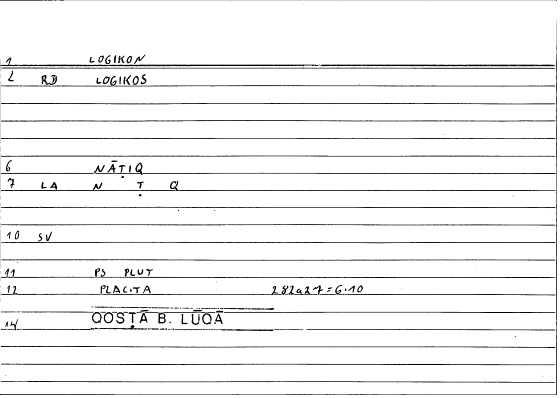 1 LOGIKON
2 RD LOGIKOS
6 NĀṬIQ
7 LA N Ṭ Q
10 SV
11 PS PLUT
12 PLACITA 282a27=6.10
14 QOSṬĀ B. LŪQĀ